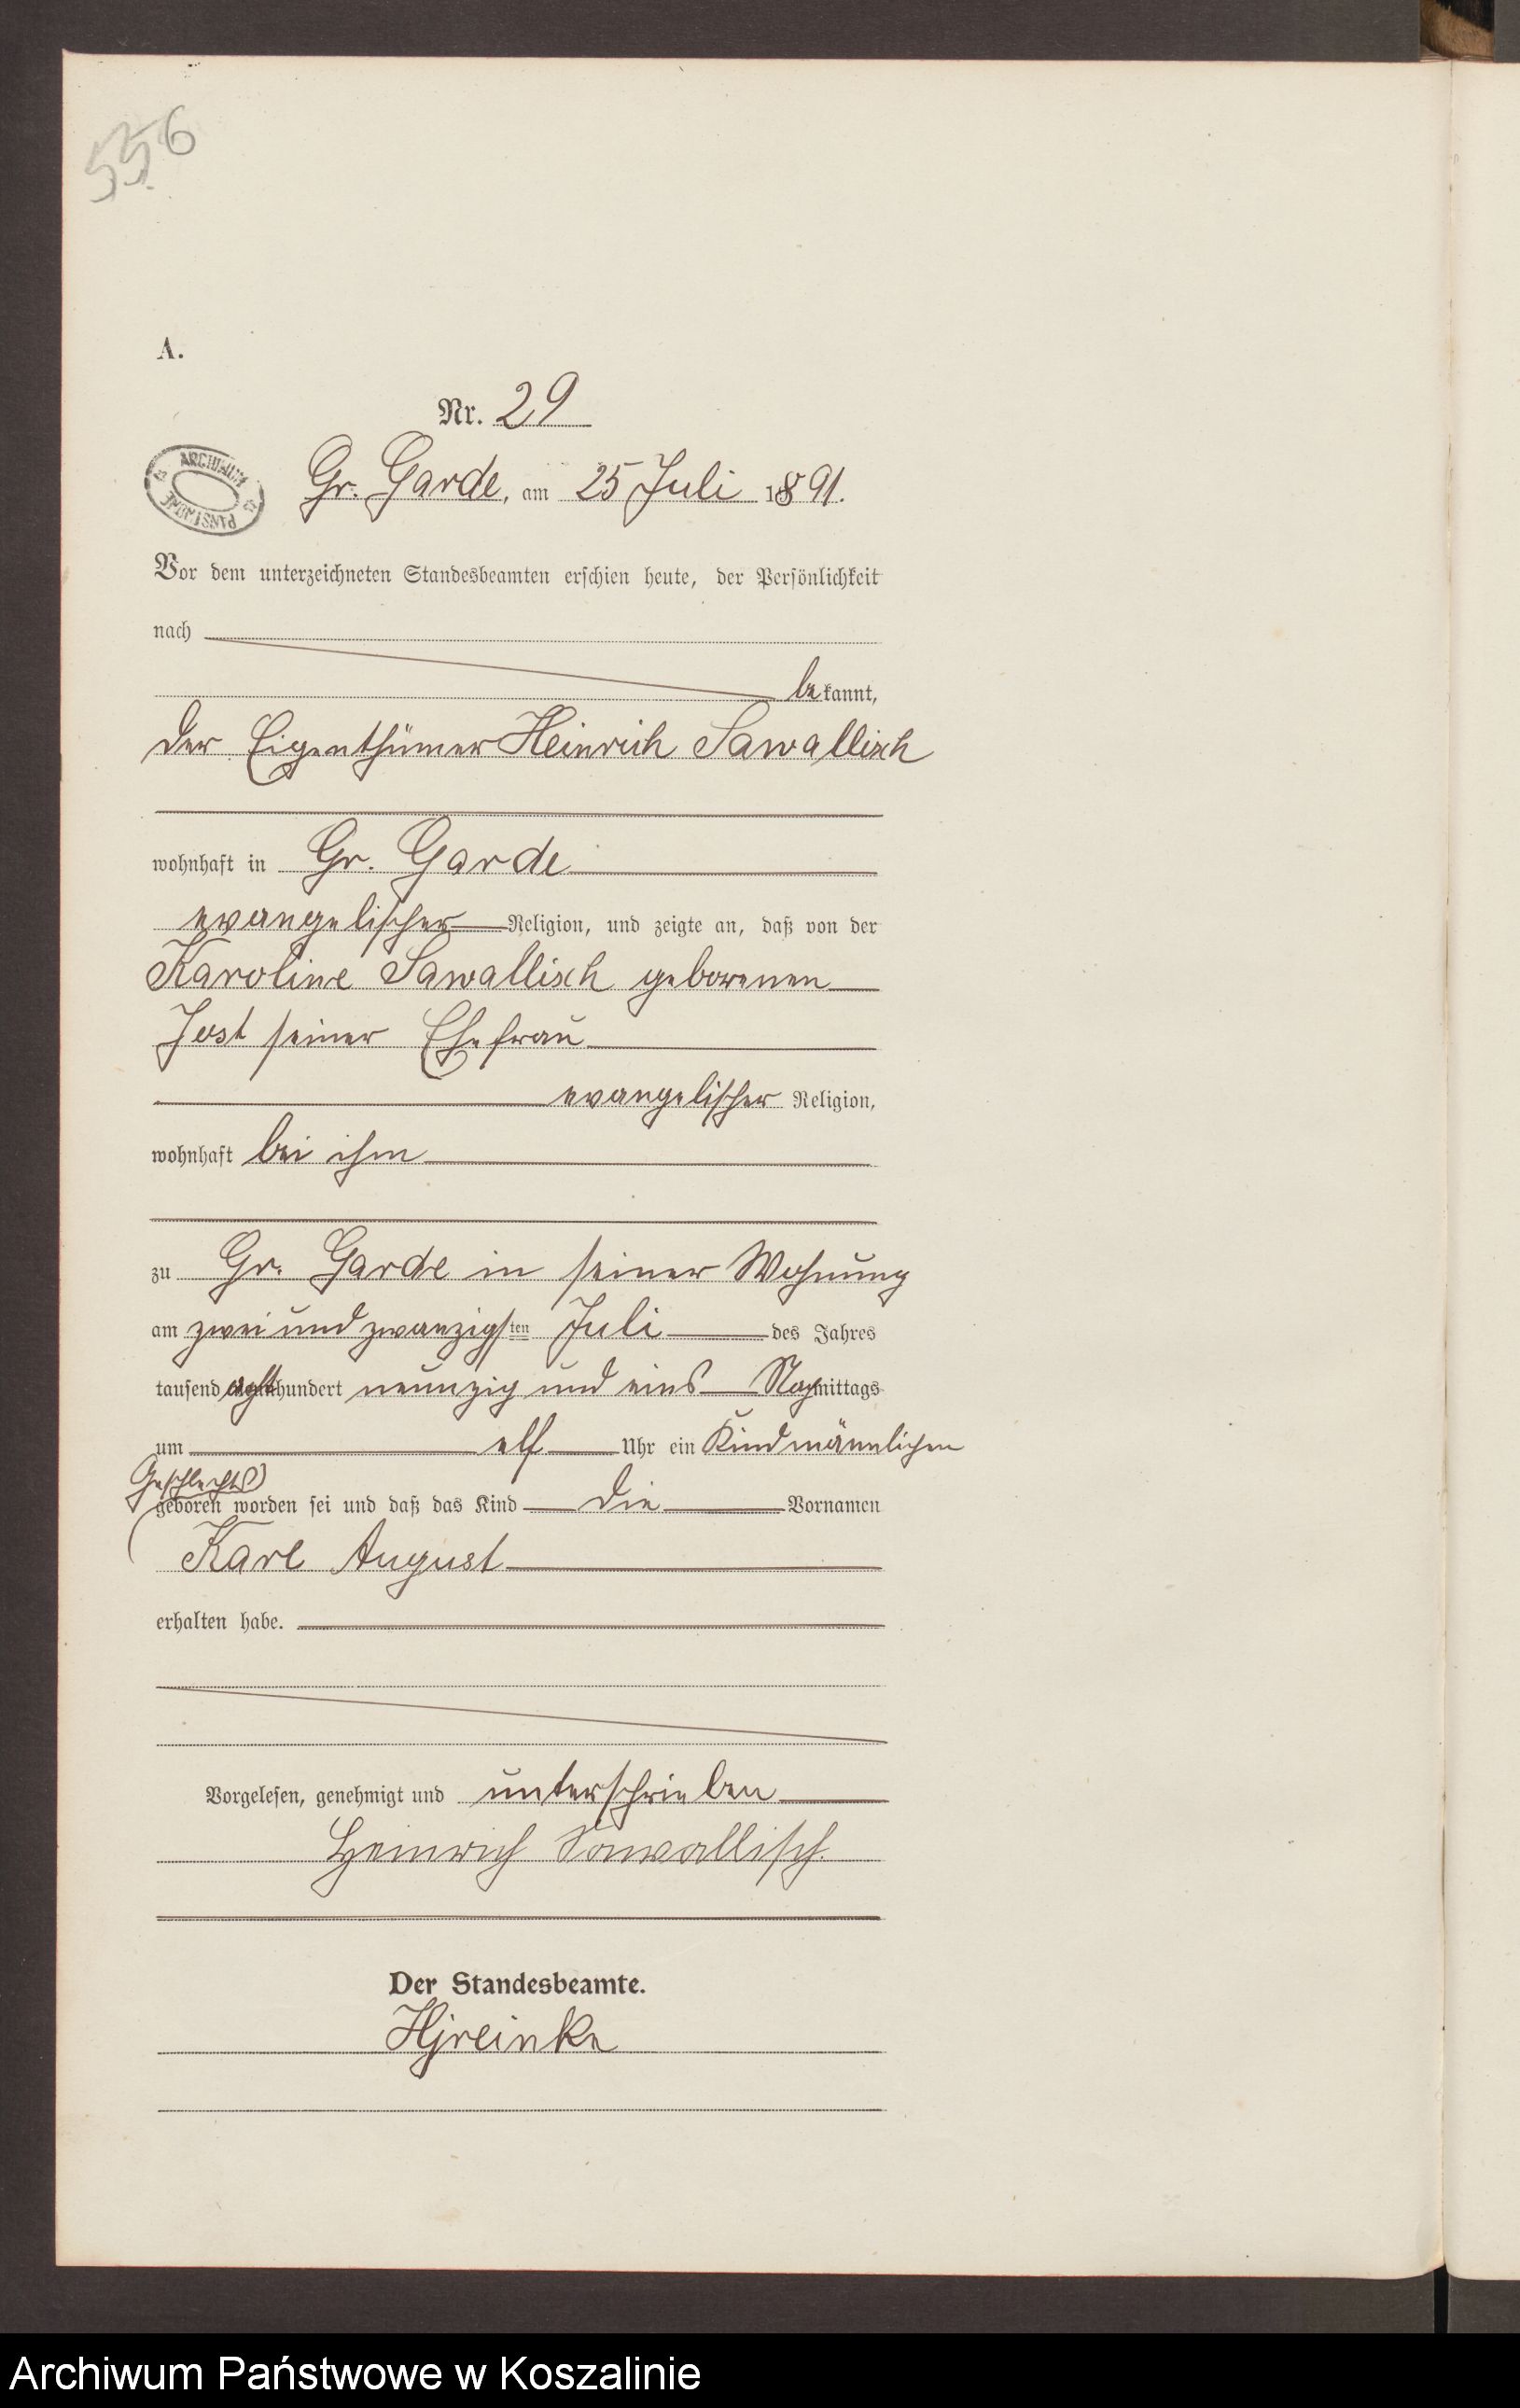 556
A.
Nr. 29
ARCHIWUM PAŃSTWOWE
Gr. Garde, am 25 Juli 1891.
Vor dem unterzeichneten Standesbeamten erschien heute, der Persönlichkeit
nach
bekannt,
der Eigenthümer Heinrich Sawallisch
wohnhaft in Gr. Garde
evangelischer Religion, und zeigte an, daß von der
Karoline Sawallisch geborenen
Jost seiner Ehefrau
evangelischer Religion,
wohnhaft bei ihm
zu Gr. Garde in seiner Wohnung
am zwei und zwanzigsten Juli des Jahres
tausend achthundert neunzig und eins Nachmittags
um elf Uhr ein Kind männlichen
Geschlechts
geboren worden sei und daß das Kind die Vornamen
Karl August
erhalten habe.
Vorgelesen, genehmigt und unterschrieben
Heinrich Sawallisch.
Der Standesbeamte.
Archiwum Państwowe w Koszalinie